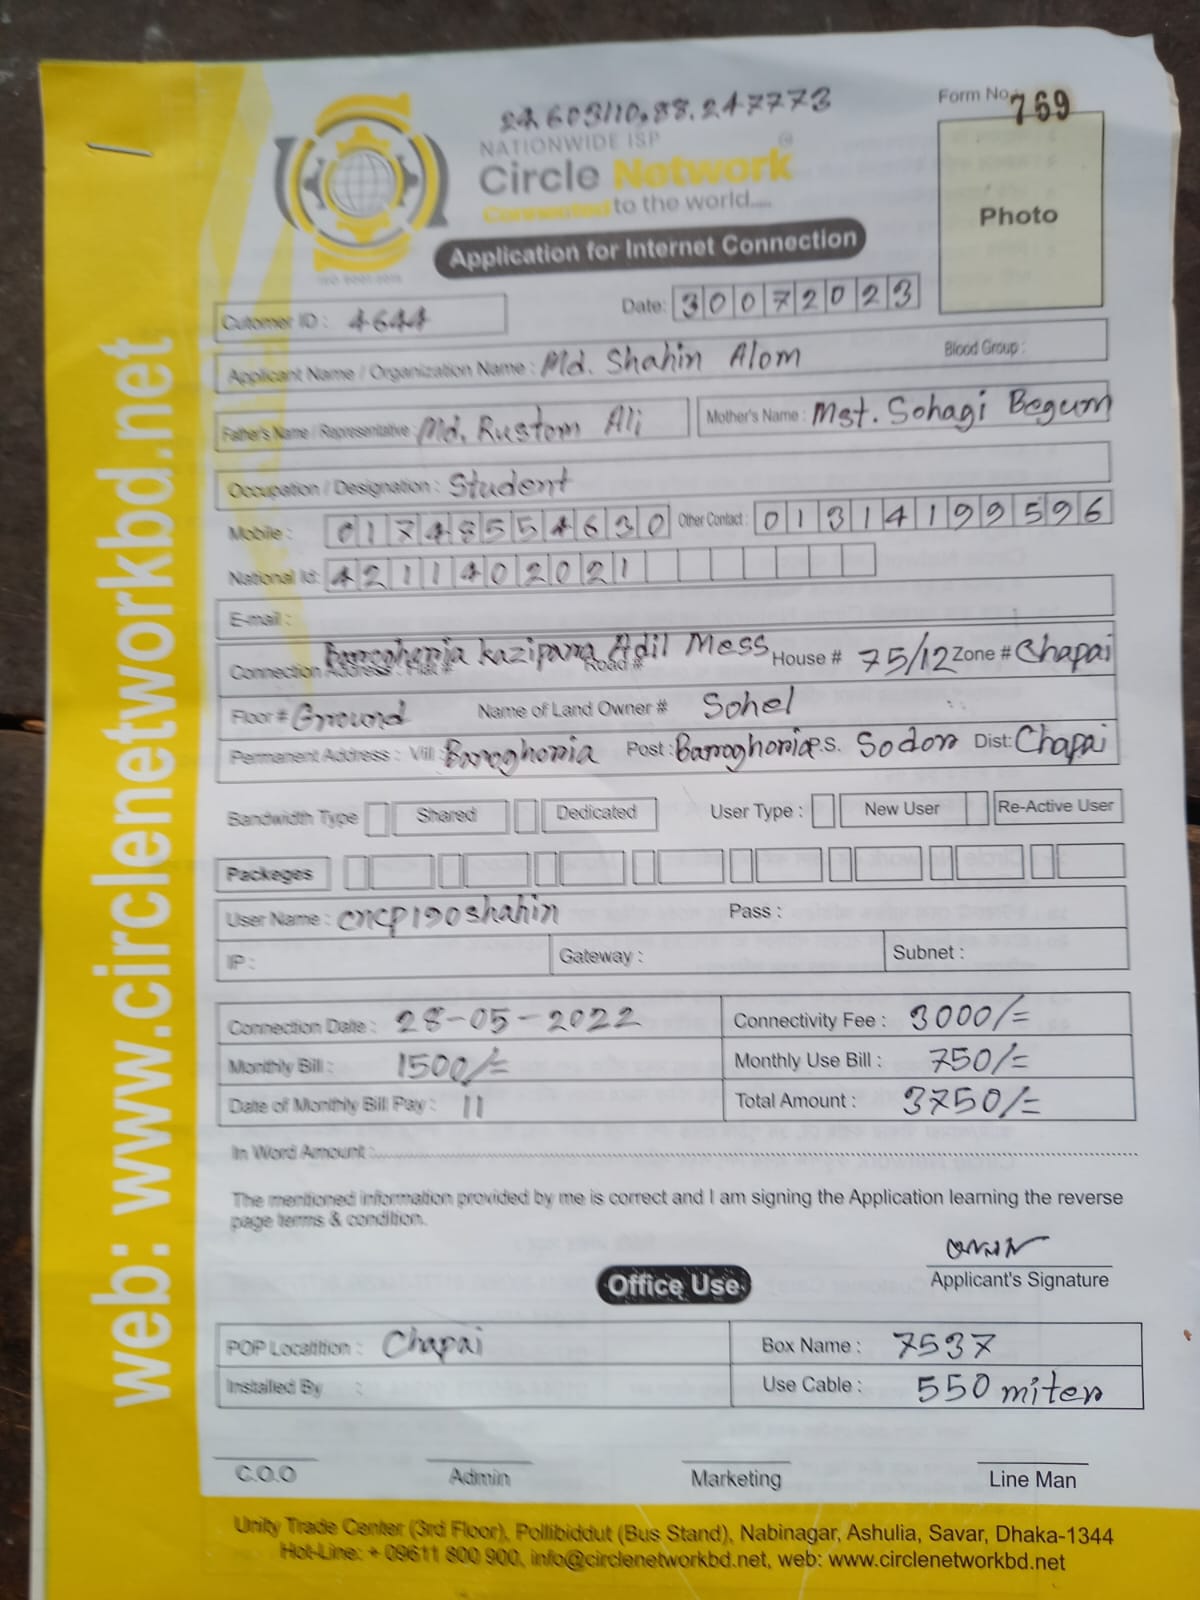 24.603110,88.247773
Form No. 769
NATIONWIDE ISP
Circle Network
Connected to the world....
Photo
Application for Internet Connection
Cutomer ID : 4644
Date: 30072023
Applicant Name / Organization Name : Md. Shahin Alom
Blood Group :
Father's Name / Representative : Md. Rustom Ali
Mother's Name : Mst. Sohagi Begum
Occupation / Designation : Student
Mobile : 01748554630 Other Contact : 01314199596
National Id: 4211402021
E-mail :
Connection Address : Flat # Baroghoria kazipara Adil Mess Road # House # 75/12 Zone # Chapai
Floor # Ground Name of Land Owner # Sohel
Permanent Address : Vill : Baroghoria Post : Baroghoria P.S. Sodor Dist: Chapai
Bandwidth Type Shared Dedicated User Type : New User Re-Active User
Packeges
User Name : cncp190shahin Pass :
IP : Gateway : Subnet :
Connection Date : 28-05-2022 Connectivity Fee : 3000/=
Monthly Bill : 1500/= Monthly Use Bill : 750/=
Date of Monthly Bill Pay : 11 Total Amount : 3750/=
In Word Amount :
The mentioned information provided by me is correct and I am signing the Application learning the reverse
page terms & condition.
Applicant's Signature
Office Use
POP Locatition : Chapai Box Name : 7537
Installed By : Use Cable : 550 miter
C.O.O Admin Marketing Line Man
Unity Trade Center (3rd Floor), Pollibiddut (Bus Stand), Nabinagar, Ashulia, Savar, Dhaka-1344
Hot-Line: + 09611 800 900, info@circlenetworkbd.net, web: www.circlenetworkbd.net
web: www.circlenetworkbd.net